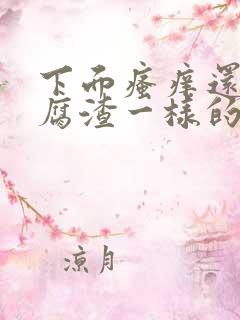 下而瘙痒還
腐渣一樣的
涼月